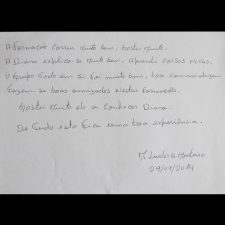 A Formação correu muito bem, Gostei Muito.
A Diana explica-se Muito bem. Aprendi Coisas Novas.
O Grupo Todo em si Foi muito bom, boa camaradagem
Fazem-se boas amizades Nestas Formações.
Gostei Muito de a Conhecer Diana.
De Tudo isto Fica uma boa experiência.
29/09/2014